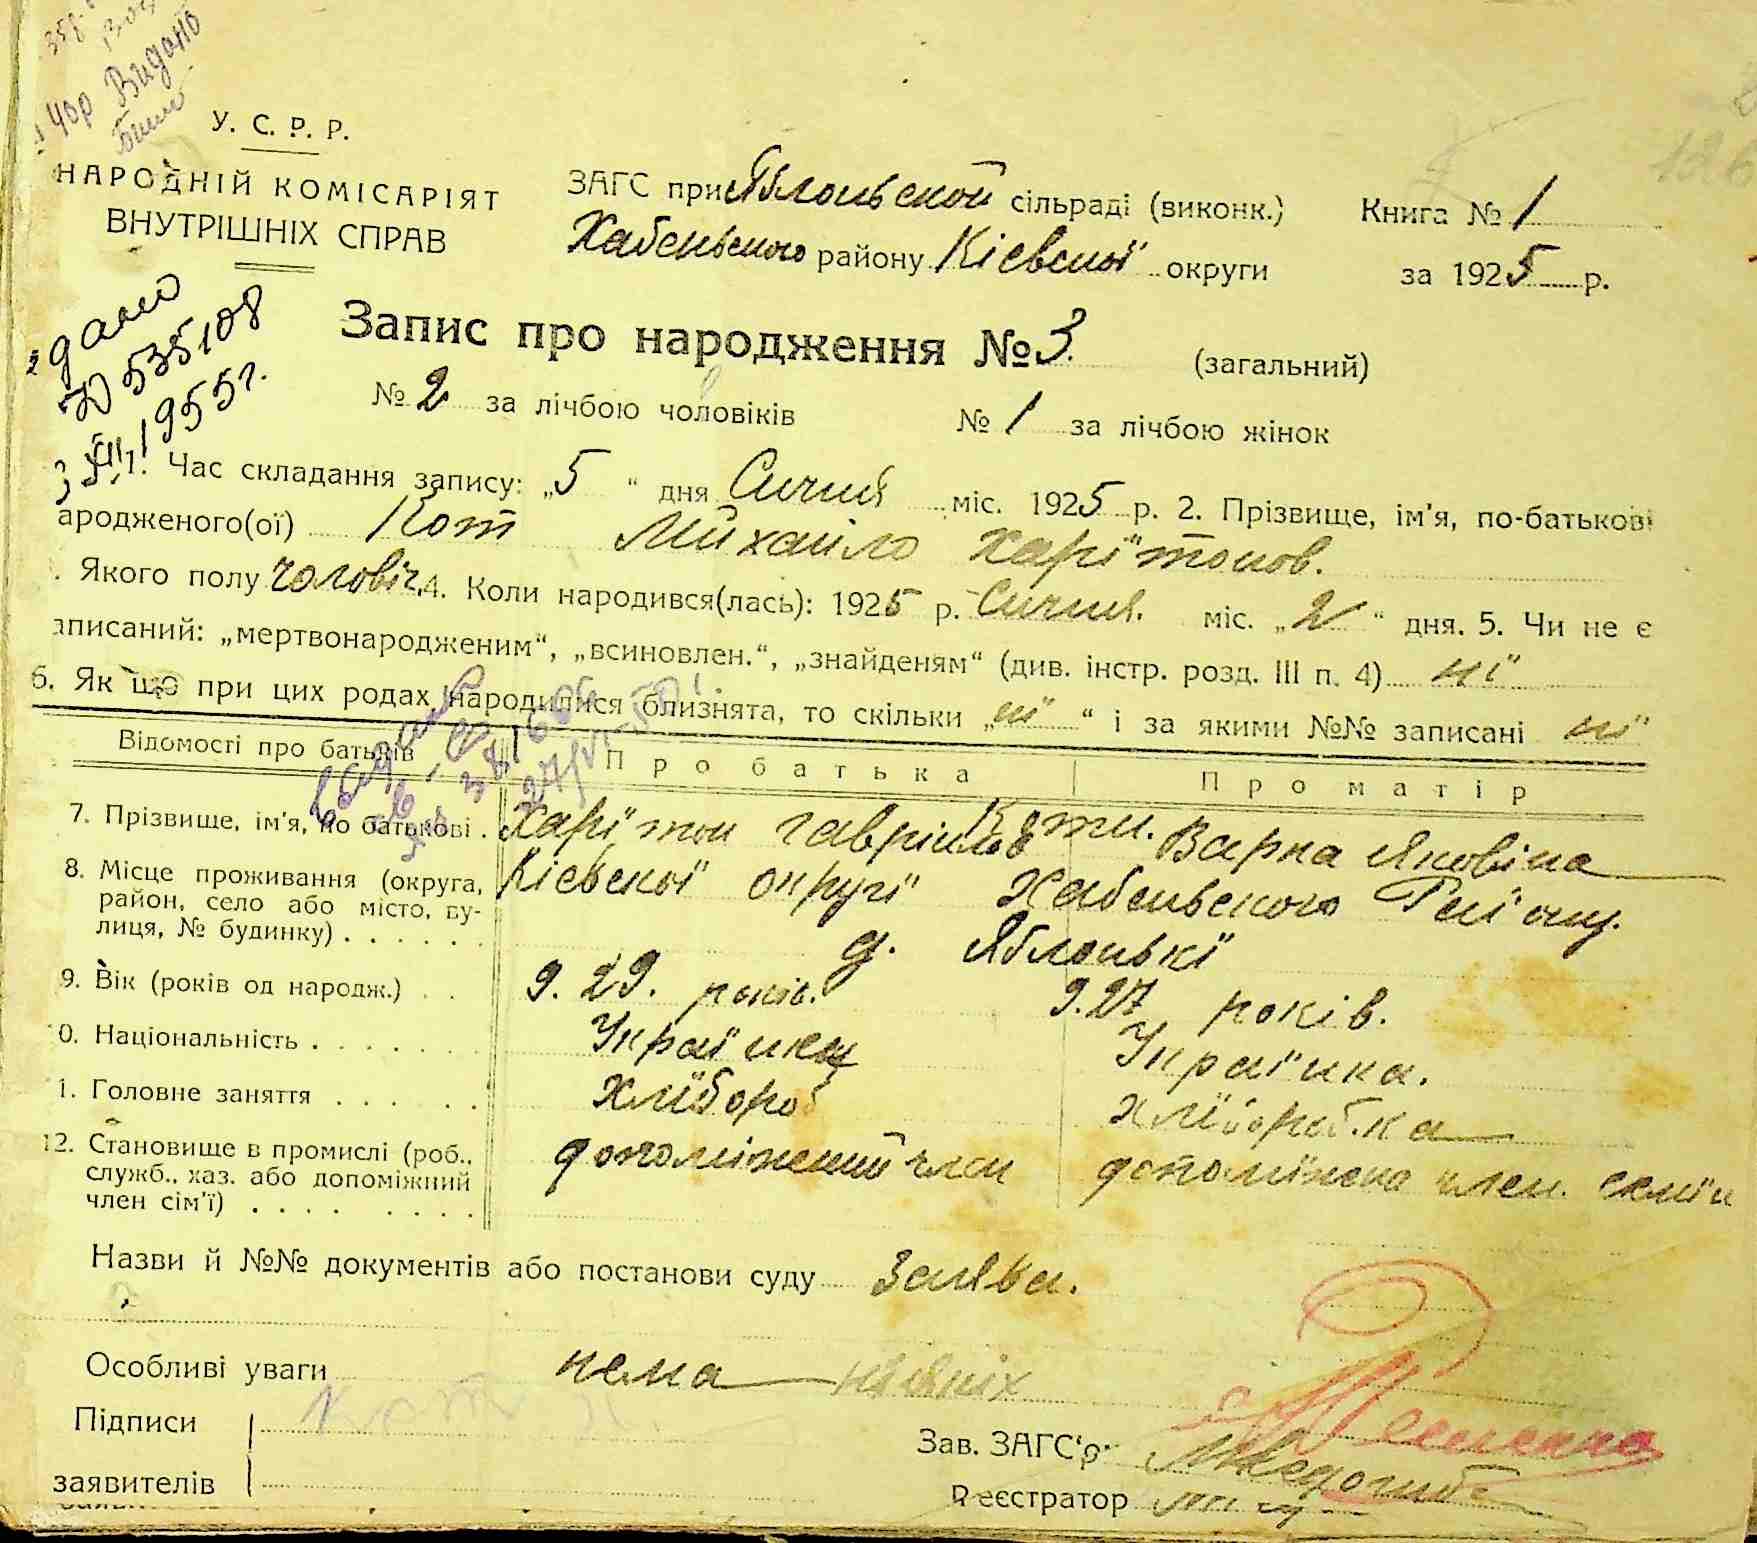 Видано
У. С. Р. Р.
НАРОДНІЙ КОМІСАРІЯТ
ВНУТРІШНІХ СПРАВ
ЗАГС при Яблоньской сільраді (виконк.) Книга № 1
Хабеньского району Кіевської округи за 1925 р.
дано
535108
1955 г.
Запис про народження № 3. (загальний)
№ 2 за лічбою чоловіків № 1 за лічбою жінок
1. Час складання запису: „5“ дня Сичня міс. 1925 р. 2. Прізвище, ім'я, по-батькові
ародженого(ої) Кот Михайло Харітонов.
. Якого полу чоловіч. 4. Коли народився(лась): 1925 р. Сичня. міс. „2“ дня. 5. Чи не є
аписаний: „мертвонародженим“, „всиновлен.“, „знайденям“ (див. інстр. розд. III п. 4) ні
6. Як що при цих родах народилися близнята, то скільки „ні“ і за якими №№ записані ні
Відомості про батьків Про батька Про матір
7. Прізвище, ім'я, по батькові . Харітон Гаврилов Коти. Варка Яковіна
8. Місце проживання (округа, район, село або місто, вулиця, № будинку) . . . . . . Кіевської округі Хабеньского Району.
д. Яблонькі
9. Вік (років од народж.) . . 29. років. 27 років.
0. Національність . . . . . . . Українец Українка.
1. Головне заняття . . . . . . Хлібороб хліборобка
12. Становище в промислі (роб., служб., хаз. або допоміжний член сім'ї) . . . . . . . . допоміжний член допоміжна член. семїи
Назви й №№ документів або постанови суду Заява.
Особливі уваги нема ніяких
Підписи Кот
заявителів
Зав. ЗАГС'о
Реєстратор